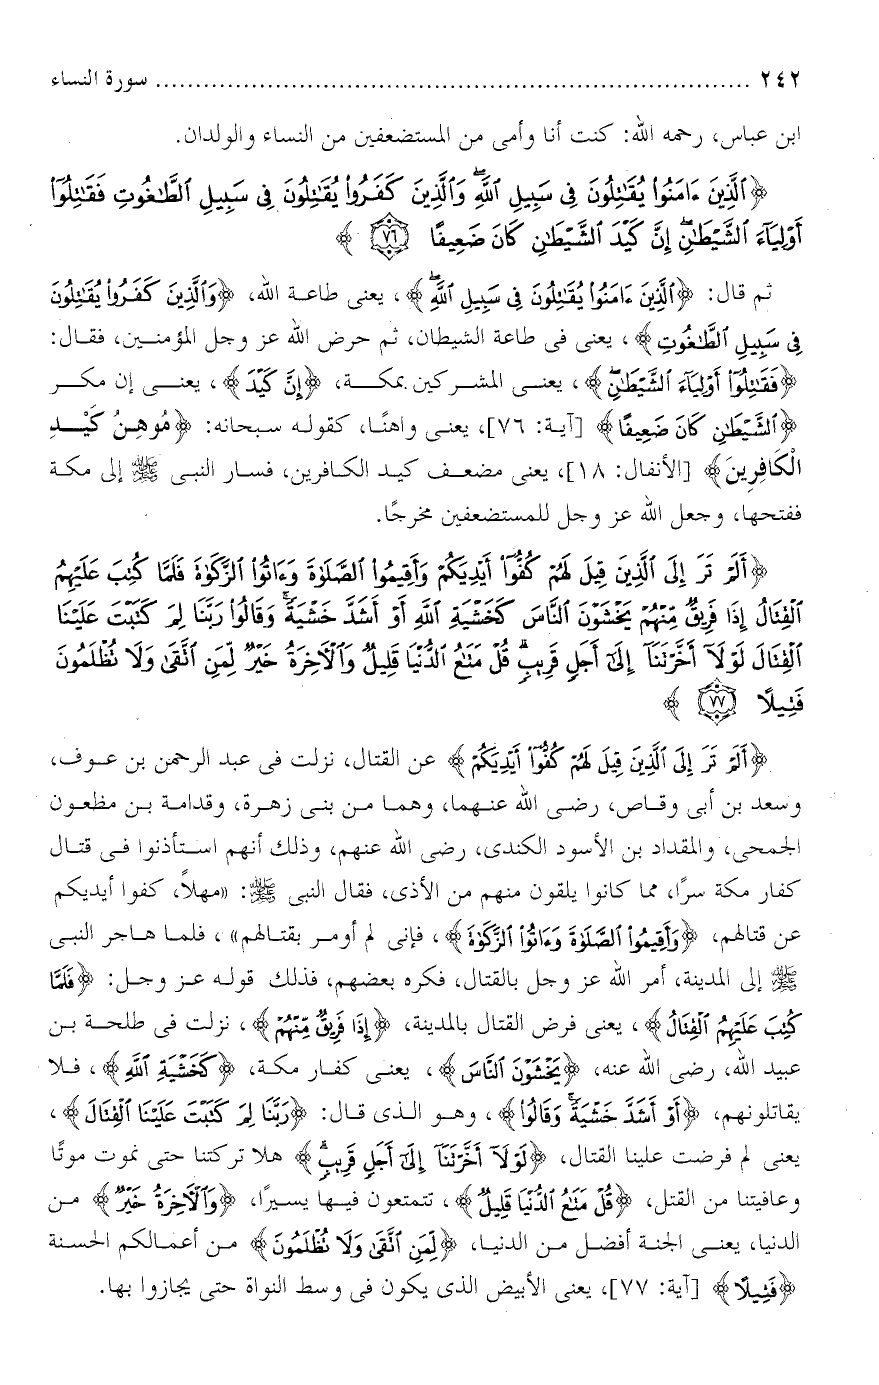 ٢٤٢ ........................................................................... سورة النساء
ابن عباس، رحمه الله: كنت أنا وأمى من المستضعفين من النساء والولدان.
﴿ٱلَّذِينَ ءَامَنُوا۟ يُقَٰتِلُونَ فِى سَبِيلِ ٱللَّهِۖ وَٱلَّذِينَ كَفَرُوا۟ يُقَٰتِلُونَ فِى سَبِيلِ ٱلطَّٰغُوتِ فَقَٰتِلُوٓا۟
أَوْلِيَآءَ ٱلشَّيْطَٰنِۖ إِنَّ كَيْدَ ٱلشَّيْطَٰنِ كَانَ ضَعِيفًا ٧٦﴾
ثم قال: ﴿ٱلَّذِينَ ءَامَنُوا۟ يُقَٰتِلُونَ فِى سَبِيلِ ٱللَّهِۖ﴾، يعنى طاعة الله، ﴿وَٱلَّذِينَ كَفَرُوا۟ يُقَٰتِلُونَ
فِى سَبِيلِ ٱلطَّٰغُوتِ﴾، يعنى فى طاعة الشيطان، ثم حرض الله عز وجل المؤمنين، فقال:
﴿فَقَٰتِلُوٓا۟ أَوْلِيَآءَ ٱلشَّيْطَٰنِۖ﴾، يعنى المشركين بمكة، ﴿إِنَّ كَيْدَ﴾، يعنى إن مكر
﴿ٱلشَّيْطَٰنِ كَانَ ضَعِيفًا﴾ [آية: ٧٦]، يعنى واهنًا، كقوله سبحانه: ﴿مُوهِنُ كَيْدِ
الْكَافِرِينَ﴾ [الأنفال: ١٨]، يعنى مضعف كيد الكافرين، فسار النبى ﷺ إلى مكة
ففتحها، وجعل الله عز وجل للمستضعفين مخرجًا.
﴿أَلَمْ تَرَ إِلَى ٱلَّذِينَ قِيلَ لَهُمْ كُفُّوٓا۟ أَيْدِيَكُمْ وَأَقِيمُوا۟ ٱلصَّلَوٰةَ وَءَاتُوا۟ ٱلزَّكَوٰةَ فَلَمَّا كُتِبَ عَلَيْهِمُ
ٱلْقِتَالُ إِذَا فَرِيقٌ مِّنْهُمْ يَخْشَوْنَ ٱلنَّاسَ كَخَشْيَةِ ٱللَّهِ أَوْ أَشَدَّ خَشْيَةًۚ وَقَالُوا۟ رَبَّنَا لِمَ كَتَبْتَ عَلَيْنَا
ٱلْقِتَالَ لَوْلَآ أَخَّرْتَنَآ إِلَىٰٓ أَجَلٍ قَرِيبٍۗ قُلْ مَتَٰعُ ٱلدُّنْيَا قَلِيلٌ وَٱلْءَاخِرَةُ خَيْرٌ لِّمَنِ ٱتَّقَىٰ وَلَا تُظْلَمُونَ
فَتِيلًا ٧٧﴾
﴿أَلَمْ تَرَ إِلَى ٱلَّذِينَ قِيلَ لَهُمْ كُفُّوٓا۟ أَيْدِيَكُمْ﴾ عن القتال، نزلت فى عبد الرحمن بن عوف،
وسعد بن أبى وقاص، رضى الله عنهما، وهما من بنى زهرة، وقدامة بن مظعون
الجمحى، والمقداد بن الأسود الكندى، رضى الله عنهم، وذلك أنهم استأذنوا فى قتال
كفار مكة سرًا، مما كانوا يلقون منهم من الأذى، فقال النبى ﷺ: «مهلاً، كفوا أيديكم
عن قتالهم، ﴿وَأَقِيمُوا۟ ٱلصَّلَوٰةَ وَءَاتُوا۟ ٱلزَّكَوٰةَ﴾، فإنى لم أومر بقتالهم»، فلما هاجر النبى
ﷺ إلى المدينة، أمر الله عز وجل بالقتال، فكره بعضهم، فذلك قوله عز وجل: ﴿فَلَمَّا
كُتِبَ عَلَيْهِمُ ٱلْقِتَالُ﴾، يعنى فرض القتال بالمدينة، ﴿إِذَا فَرِيقٌ مِّنْهُمْ﴾، نزلت فى طلحة بن
عبيد الله، رضى الله عنه، ﴿يَخْشَوْنَ ٱلنَّاسَ﴾، يعنى كفار مكة، ﴿كَخَشْيَةِ ٱللَّهِ﴾، فلا
يقاتلونهم، ﴿أَوْ أَشَدَّ خَشْيَةًۚ وَقَالُوا۟﴾، وهو الذى قال: ﴿رَبَّنَا لِمَ كَتَبْتَ عَلَيْنَا ٱلْقِتَالَ﴾،
يعنى لم فرضت علينا القتال، ﴿لَوْلَآ أَخَّرْتَنَآ إِلَىٰٓ أَجَلٍ قَرِيبٍۗ﴾ هلا تركتنا حتى نموت موتًا
وعافيتنا من القتل، ﴿قُلْ مَتَٰعُ ٱلدُّنْيَا قَلِيلٌ﴾، تتمتعون فيها يسيرًا، ﴿وَٱلْءَاخِرَةُ خَيْرٌ﴾ من
الدنيا، يعنى الجنة أفضل من الدنيا، ﴿لِّمَنِ ٱتَّقَىٰ وَلَا تُظْلَمُونَ﴾ من أعمالكم الحسنة
﴿فَتِيلًا﴾ [آية: ٧٧]، يعنى الأبيض الذى يكون فى وسط النواة حتى يجازوا بها.